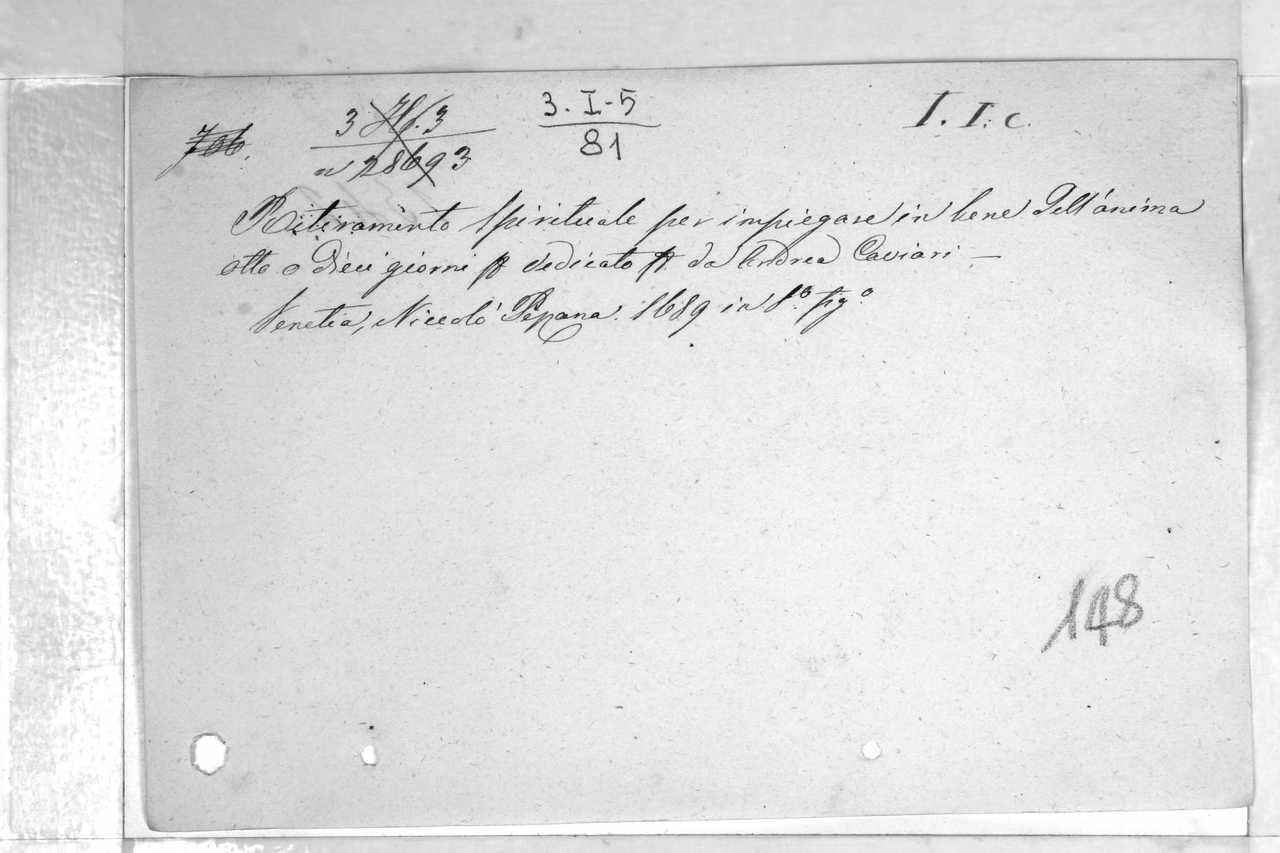 766. 3 3 3. I-5 I. I. c.
nº 28693 81
Ritiramento spirituale per impiegare in bene dell'anima
otto o dieci giorni dedicato da Andrea Caviari —
Venetia, Niccolò Pezzana. 1689 in 8.º fig.º
148